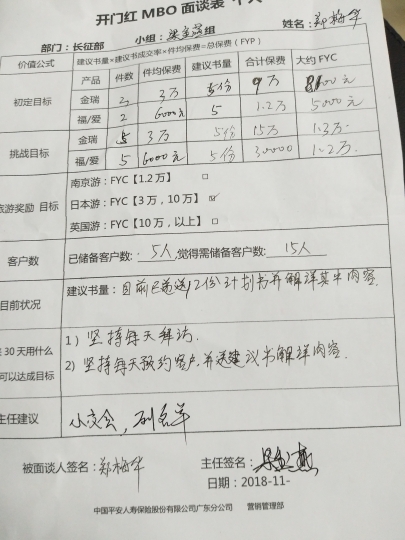 开门红 MBO 面谈表
部门：长征部 小组： 组 姓名：郑梅华
价值公式 建议书量×建议书成交率×件均保费=总保费（FYP）
产品 件数 件均保费 建议书量 合计保费 大约 FYC
初定目标 金瑞 3 3万 5份 9万 元
福/爱 2 6000元 5 1.2万 5000元
挑战目标 金瑞 5 3万 5份 15万 1.3万
福/爱 5 6000元 5份 30000 1.2万
旅游奖励 目标 南京游：FYC【1.2万】 □
日本游：FYC【3 万，10 万】 ☑
英国游：FYC【10 万，以上】 □
客户数 已储备客户数： 5人 ,觉得需储备客户数: 15人
目前状况 建议书量：目前已递送12份计划书并解详其中内容
30 天用什么 1）坚持每天拜访.
可以达成目标 2）坚持每天预约客户，并递建议书解详内容.
主任建议 小交会，列名单
被面谈人签名：郑梅华 主任签名：
日期：2018-11-
中国平安人寿保险股份有限公司广东分公司 营销管理部